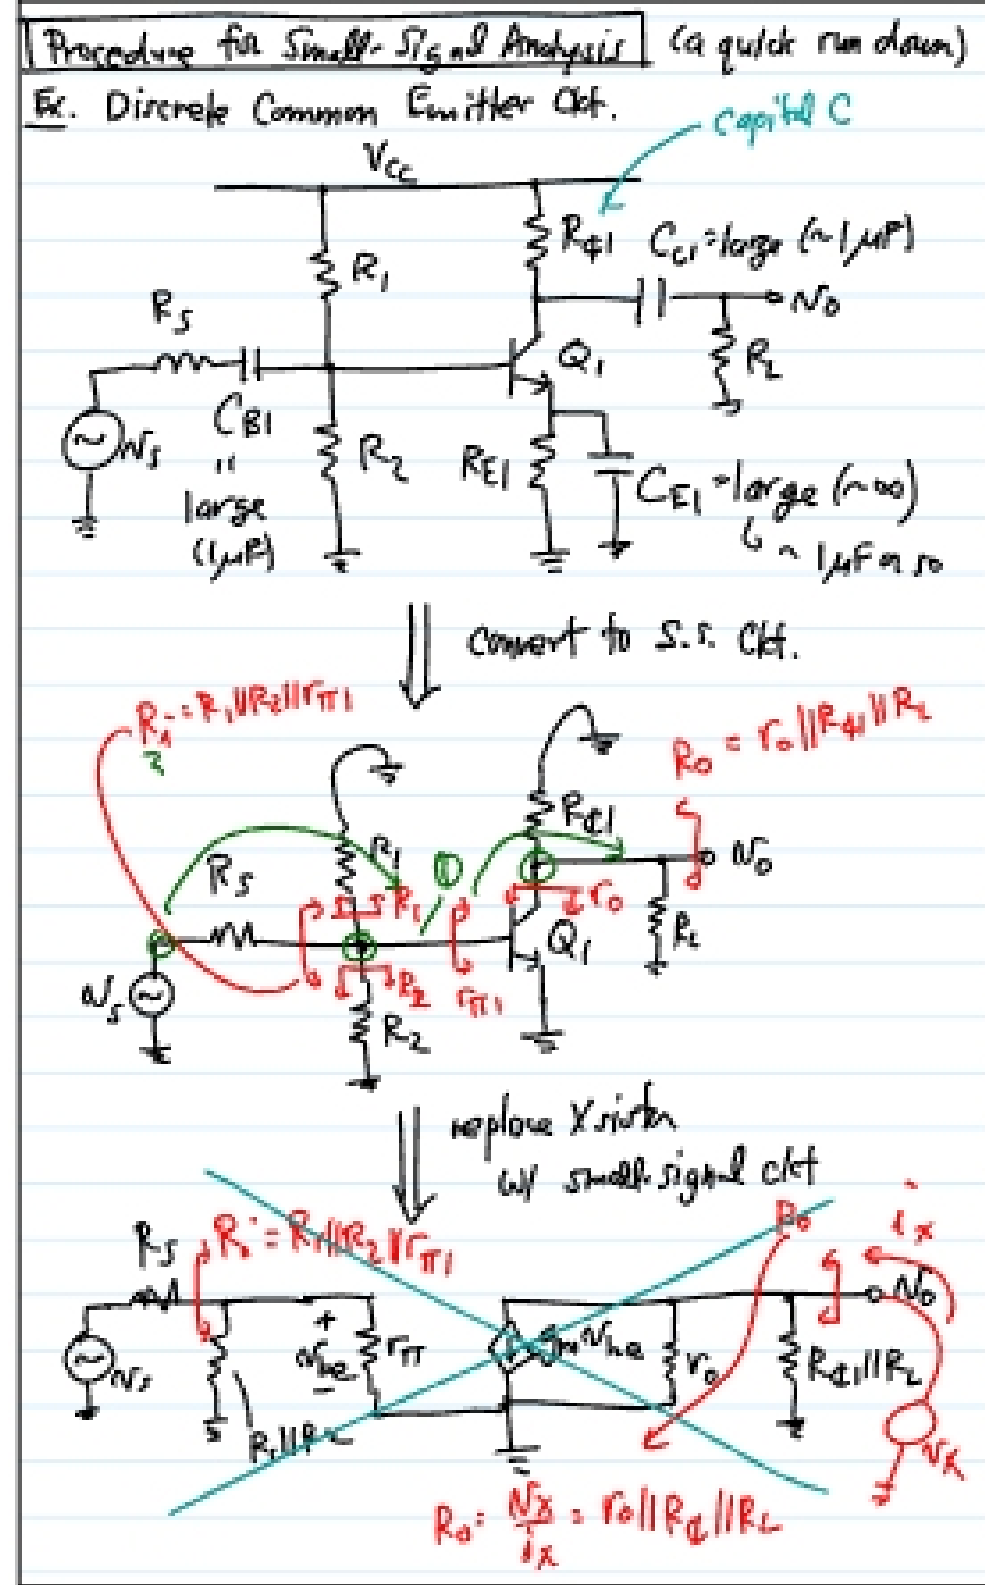 Procedure for Small-Signal Analysis (a quick run down)
Ex. Discrete Common Emitter Ckt.
capital C
Vcc
R1
RC1
CC1 = large (~1μF)
vo
RS
Q1
RL
CB1
"
large
(1μF)
vs
R2
RE1
CE1 = large (~∞)
↳ ~ 1μF or so
convert to s.s. ckt.
Ri = R1||R2||rπ1
Ro = ro||RC1||RL
RC1
vo
RS
R1
①
R1
ro
Q1
RL
vs
R2
rπ1
R2
replace Xsistor
w/ small-signal ckt
RS
Ri = R1||R2||rπ1
Ro
ix
vo
vs
+
vbe
-
rπ
gmvbe
ro
RC1||RL
R1||R2
vx
Ro = vx/ix = ro||RC||RL